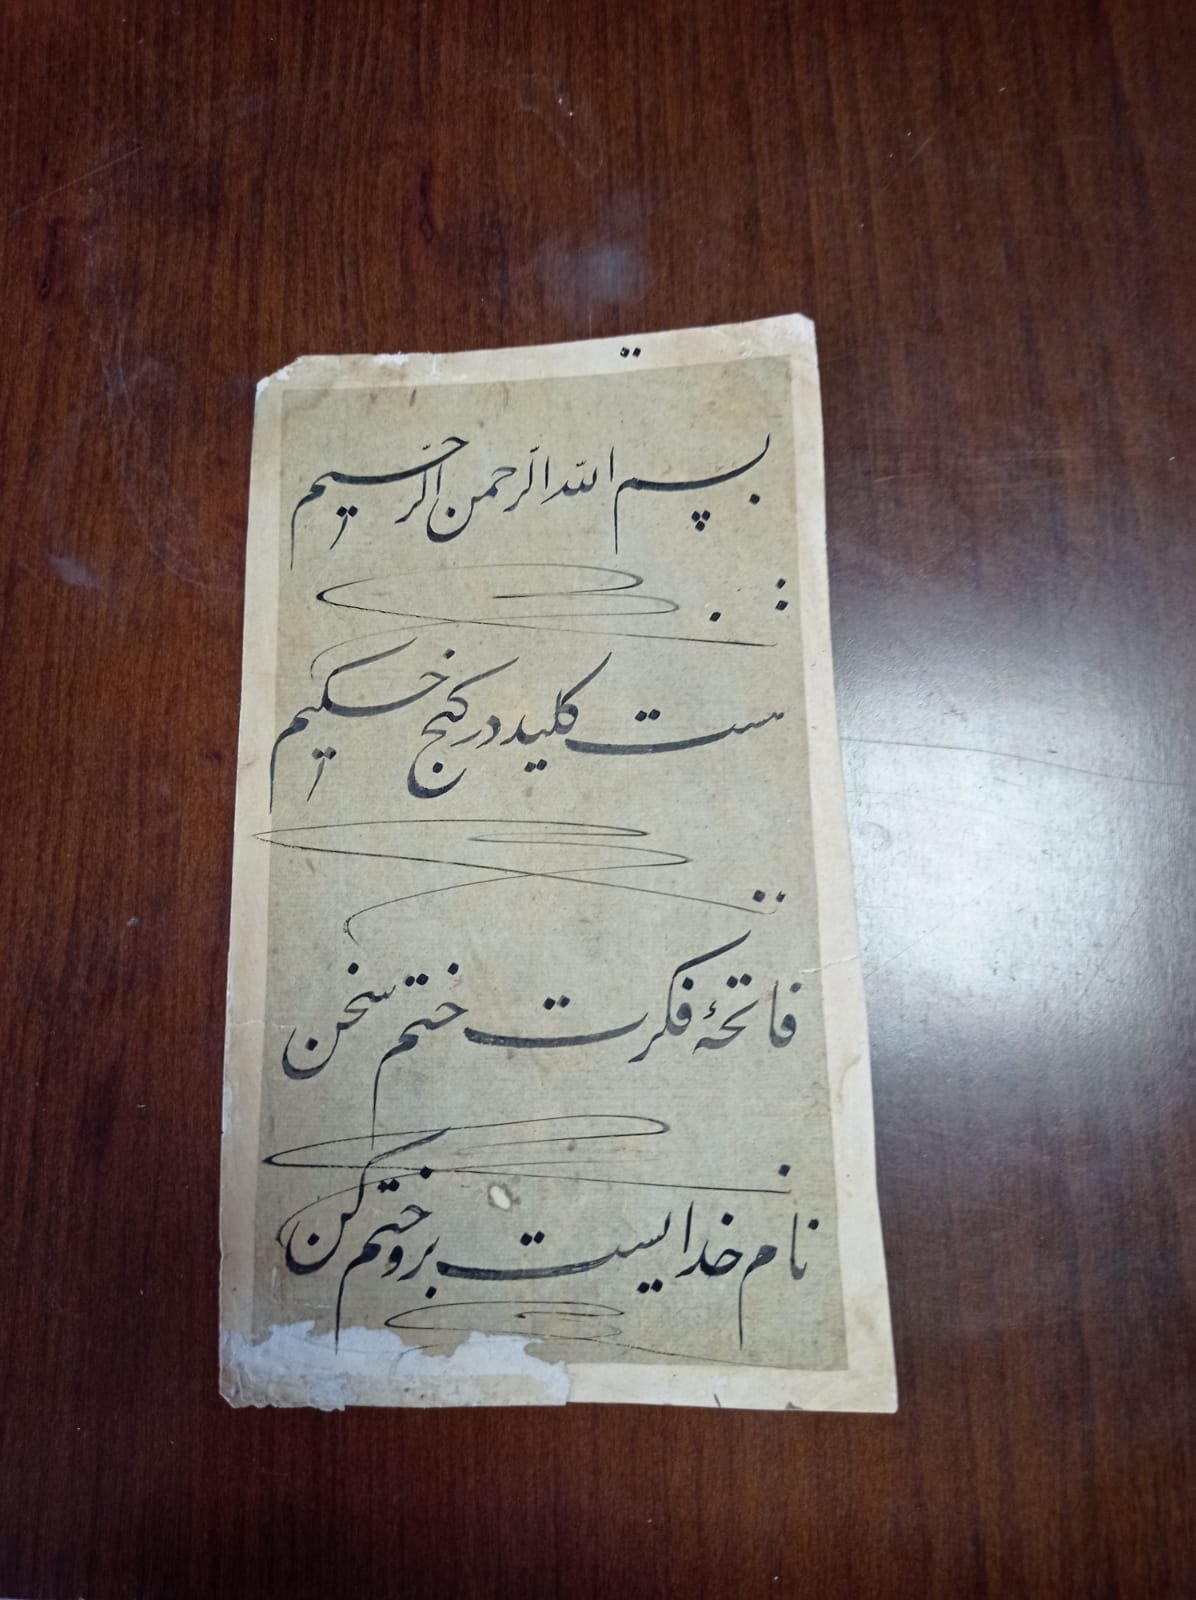 بسم الله الرحمن الرحیم
ست کلید در کنج حکیم
فاتحهٔ فکرت ختم سخن
نام خدایست برو ختم کن